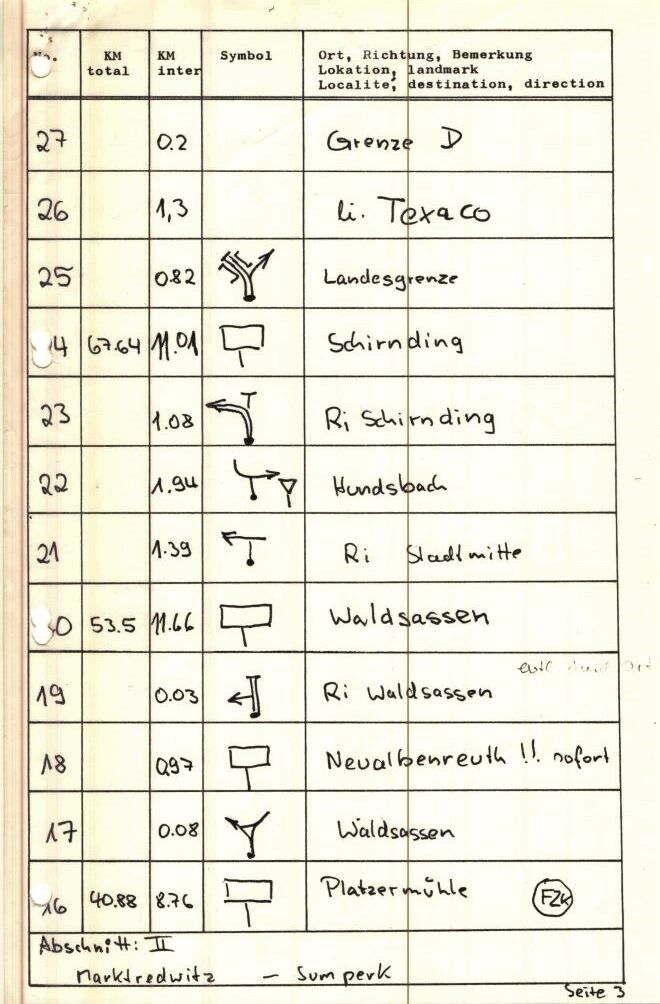 No. KM total KM inter Symbol Ort, Richtung, Bemerkung
Lokation, landmark
Localité, destination, direction
27 0.2 Grenze D
26 1,3 li. Texaco
25 0.82 Landesgrenze
24 67.64 11.01 Schirnding
23 1.08 Ri Schirnding
22 1.94 Hundsbach
21 1.39 Ri Stadtmitte
20 53.5 11.66 Waldsassen
19 0.03 Ri Waldsassen
18 0.97 Neualbenreuth !! sofort
17 0.08 Waldsassen
16 40.88 8.76 Platzermühle FZK
Abschnitt: II
Marktredwitz – Sumperk
Seite 3